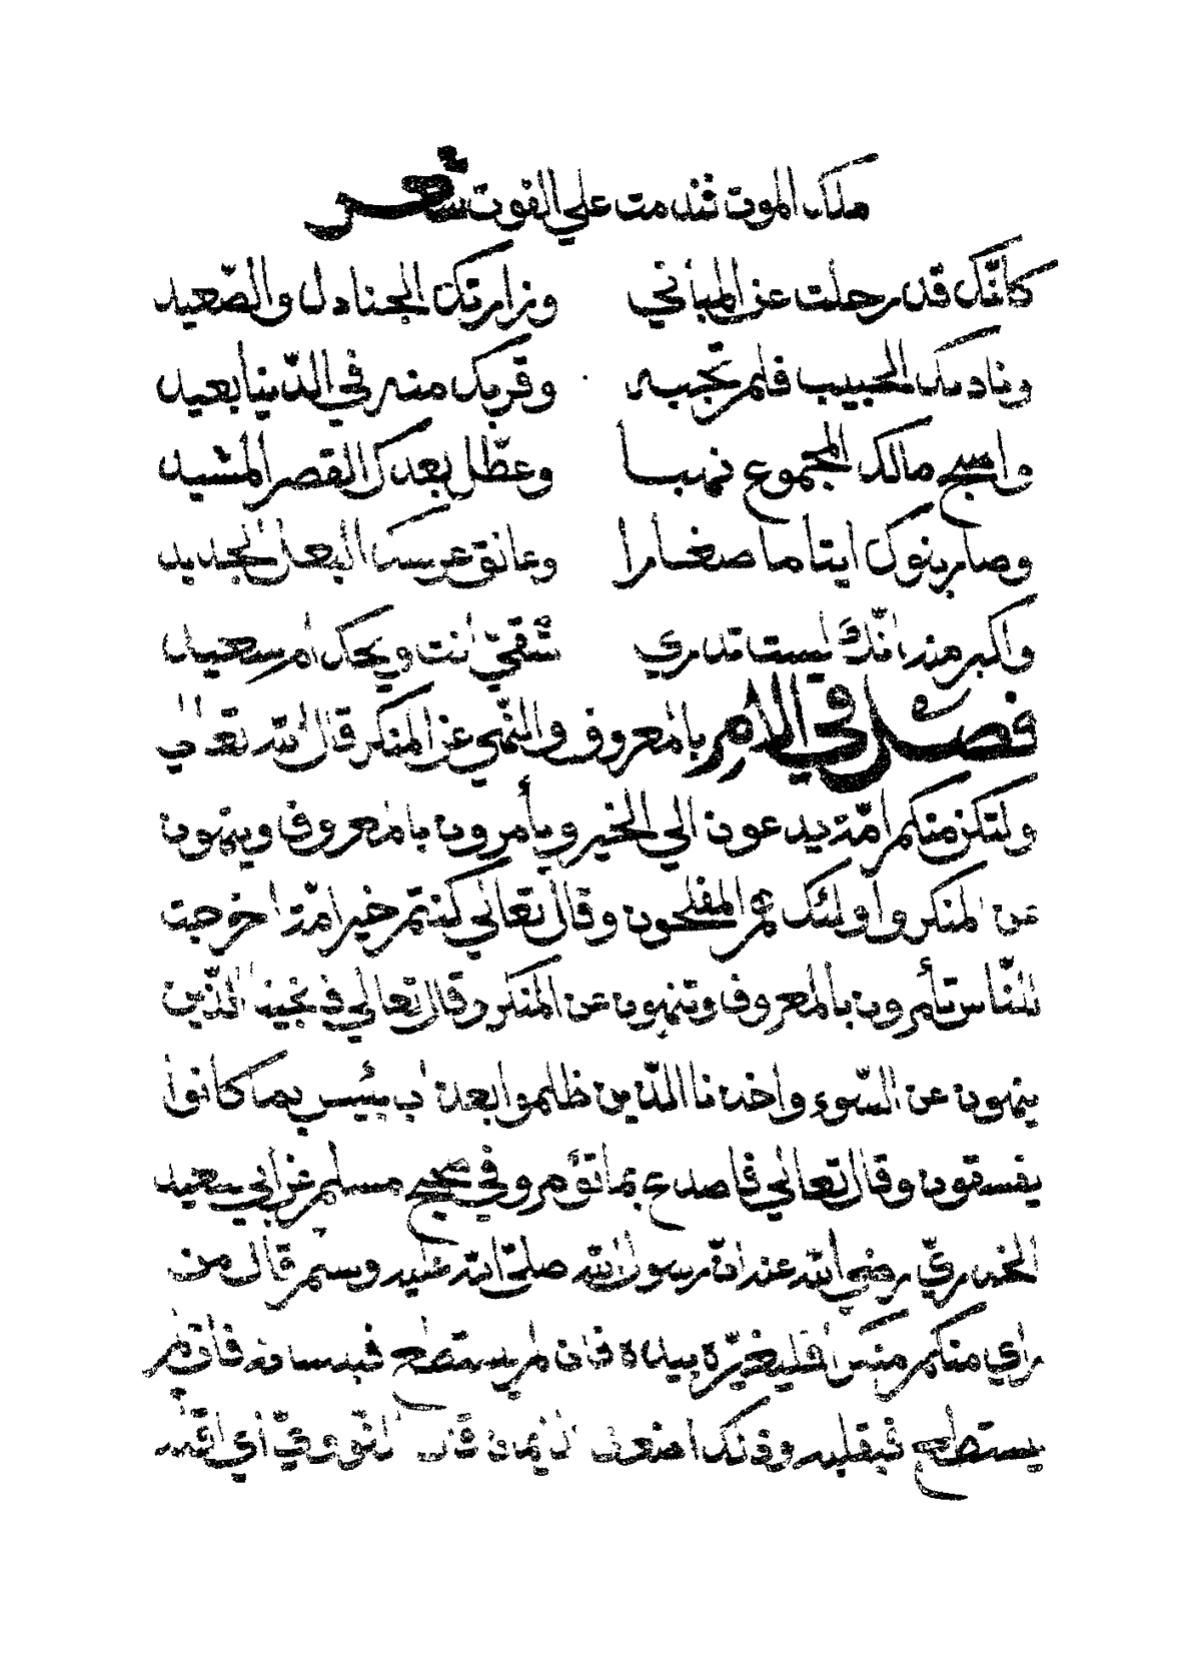 ملك الموت تندمت على الفوت شعر
كانّك قد رحلت عن المباني وزارتك الجنادل والصّعيد
وناديك الحبيب فلم تجبه وقربك منه في الدّنيا بعيد
واصبح مالك المجموع نهبا وعطّل بعدك القصر المشيد
وصار بنوك ايتاما صغارا وعانق عرسك البعل الجديد
واكبر منه انّك لست تدري شقيّ انت ويحك ام سعيد
فصل في الامر بالمعروف والنّهي عن المنكر قال الله تعالى
ولتكن منكم امّة يدعون الي الخير ويأمرون بالمعروف وينهون
عن المنكر واولئك هم المفلحون وقال تعالي كنتم خير امّة اخرجت
للنّاس تأمرون بالمعروف وتنهون عن المنكر وقال تعالي فانجينا الّذين
ينهون عن السّوء واخذنا الّذين ظلموا بعذاب بئيس بما كانوا
يفسقون وقال تعالي فاصدع بما تؤمر وفي صحيح مسلم عن ابي سعيد
الخدريّ رضي الله عنه انّ رسول الله صلّى الله عليه وسلم قال من
راي منكم منكرا فليغيّره بيده فان لم يستطع فبلسانه فان لم
يستطع فبقلبه وذلك اضعف الايمان قال النّوويّ اي اقلّه